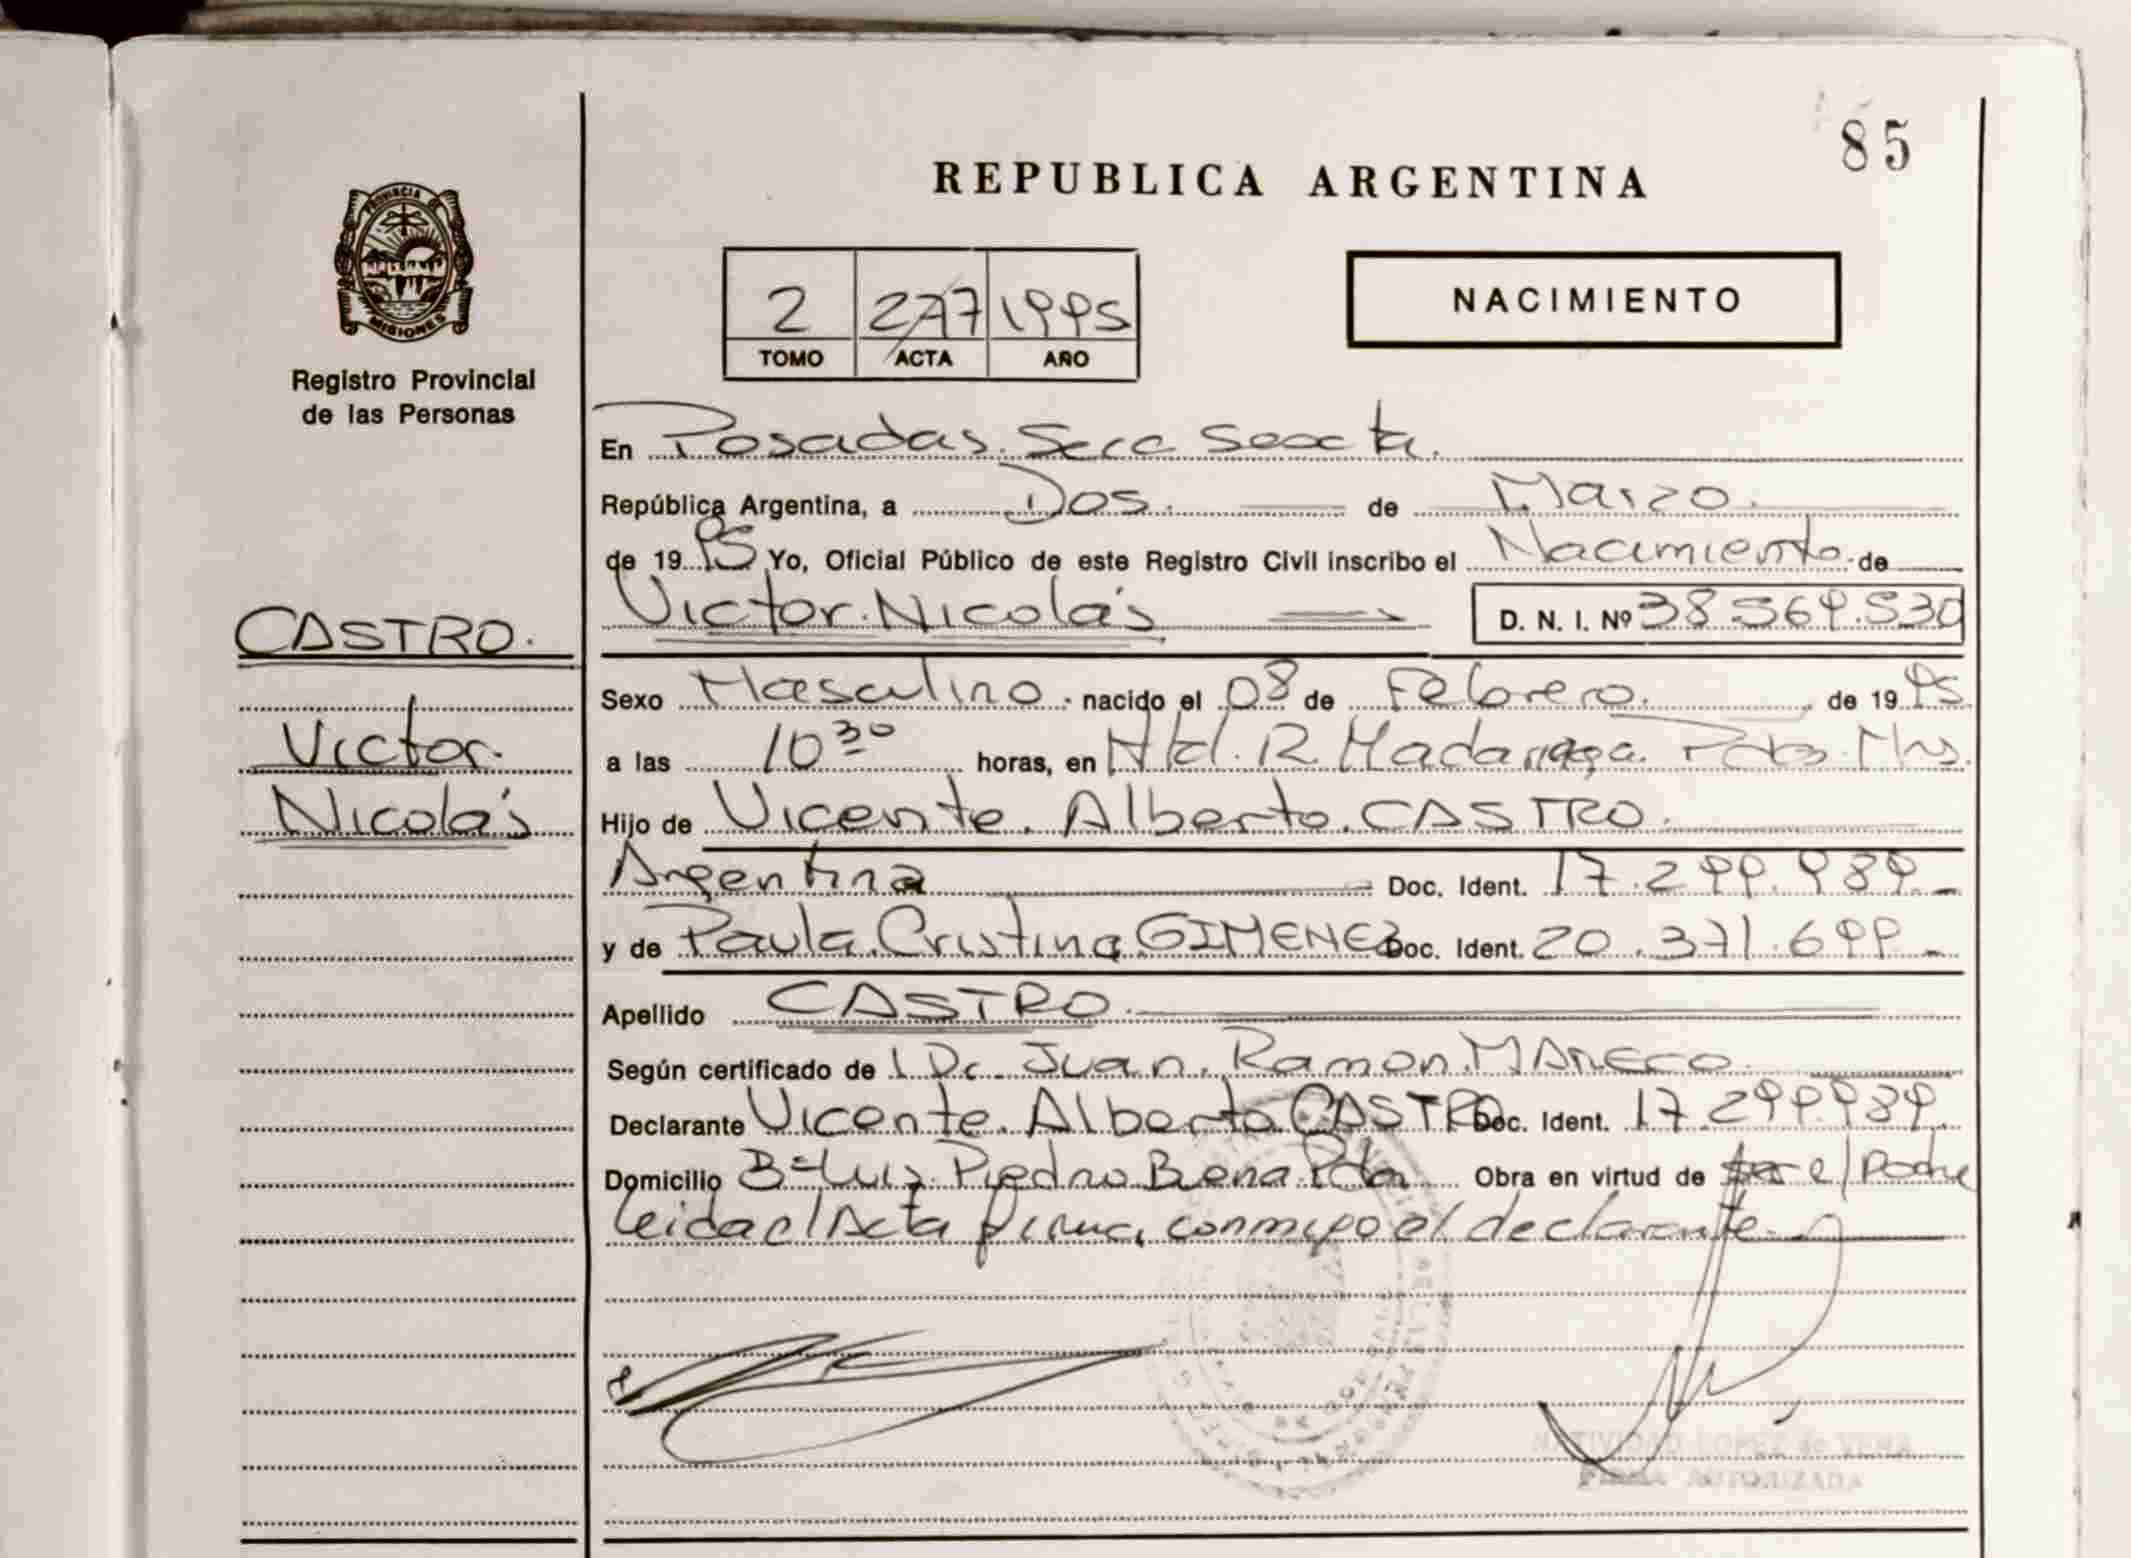 85
REPUBLICA ARGENTINA
PROVINCIA DE
MISIONES
Registro Provincial
de las Personas
2 277 1995
TOMO ACTA AÑO
NACIMIENTO
En Posadas. Secc Sexta.
República Argentina, a Dos. de Marzo.
de 1995 Yo, Oficial Público de este Registro Civil inscribo el Nacimiento de
Victor. Nicolás D. N. I. Nº 38.569.530
CASTRO.
Victor.
Nicolás
Sexo Masculino. nacido el 08 de Febrero. de 1995
a las 10 30 horas, en Htal. R. Madariaga. Pdas. Mns.
Hijo de Vicente. Alberto. CASTRO.
Argentina Doc. Ident. 17.299.989.-
y de Paula. Cristina GIMENEZ Doc. Ident. 20.371.699.-
Apellido CASTRO.
Según certificado de l Dr. Juan. Ramon. MARECO
Declarante Vicente. Alberto. CASTRO Doc. Ident. 17.299.989.
Domicilio Bº Luis Piedra Buena Pdas Obra en virtud de ser el Padre
leida el Acta firma conmigo el declarante.
NATIVIDAD LOPEZ de VERA
FIRMA AUTORIZADA